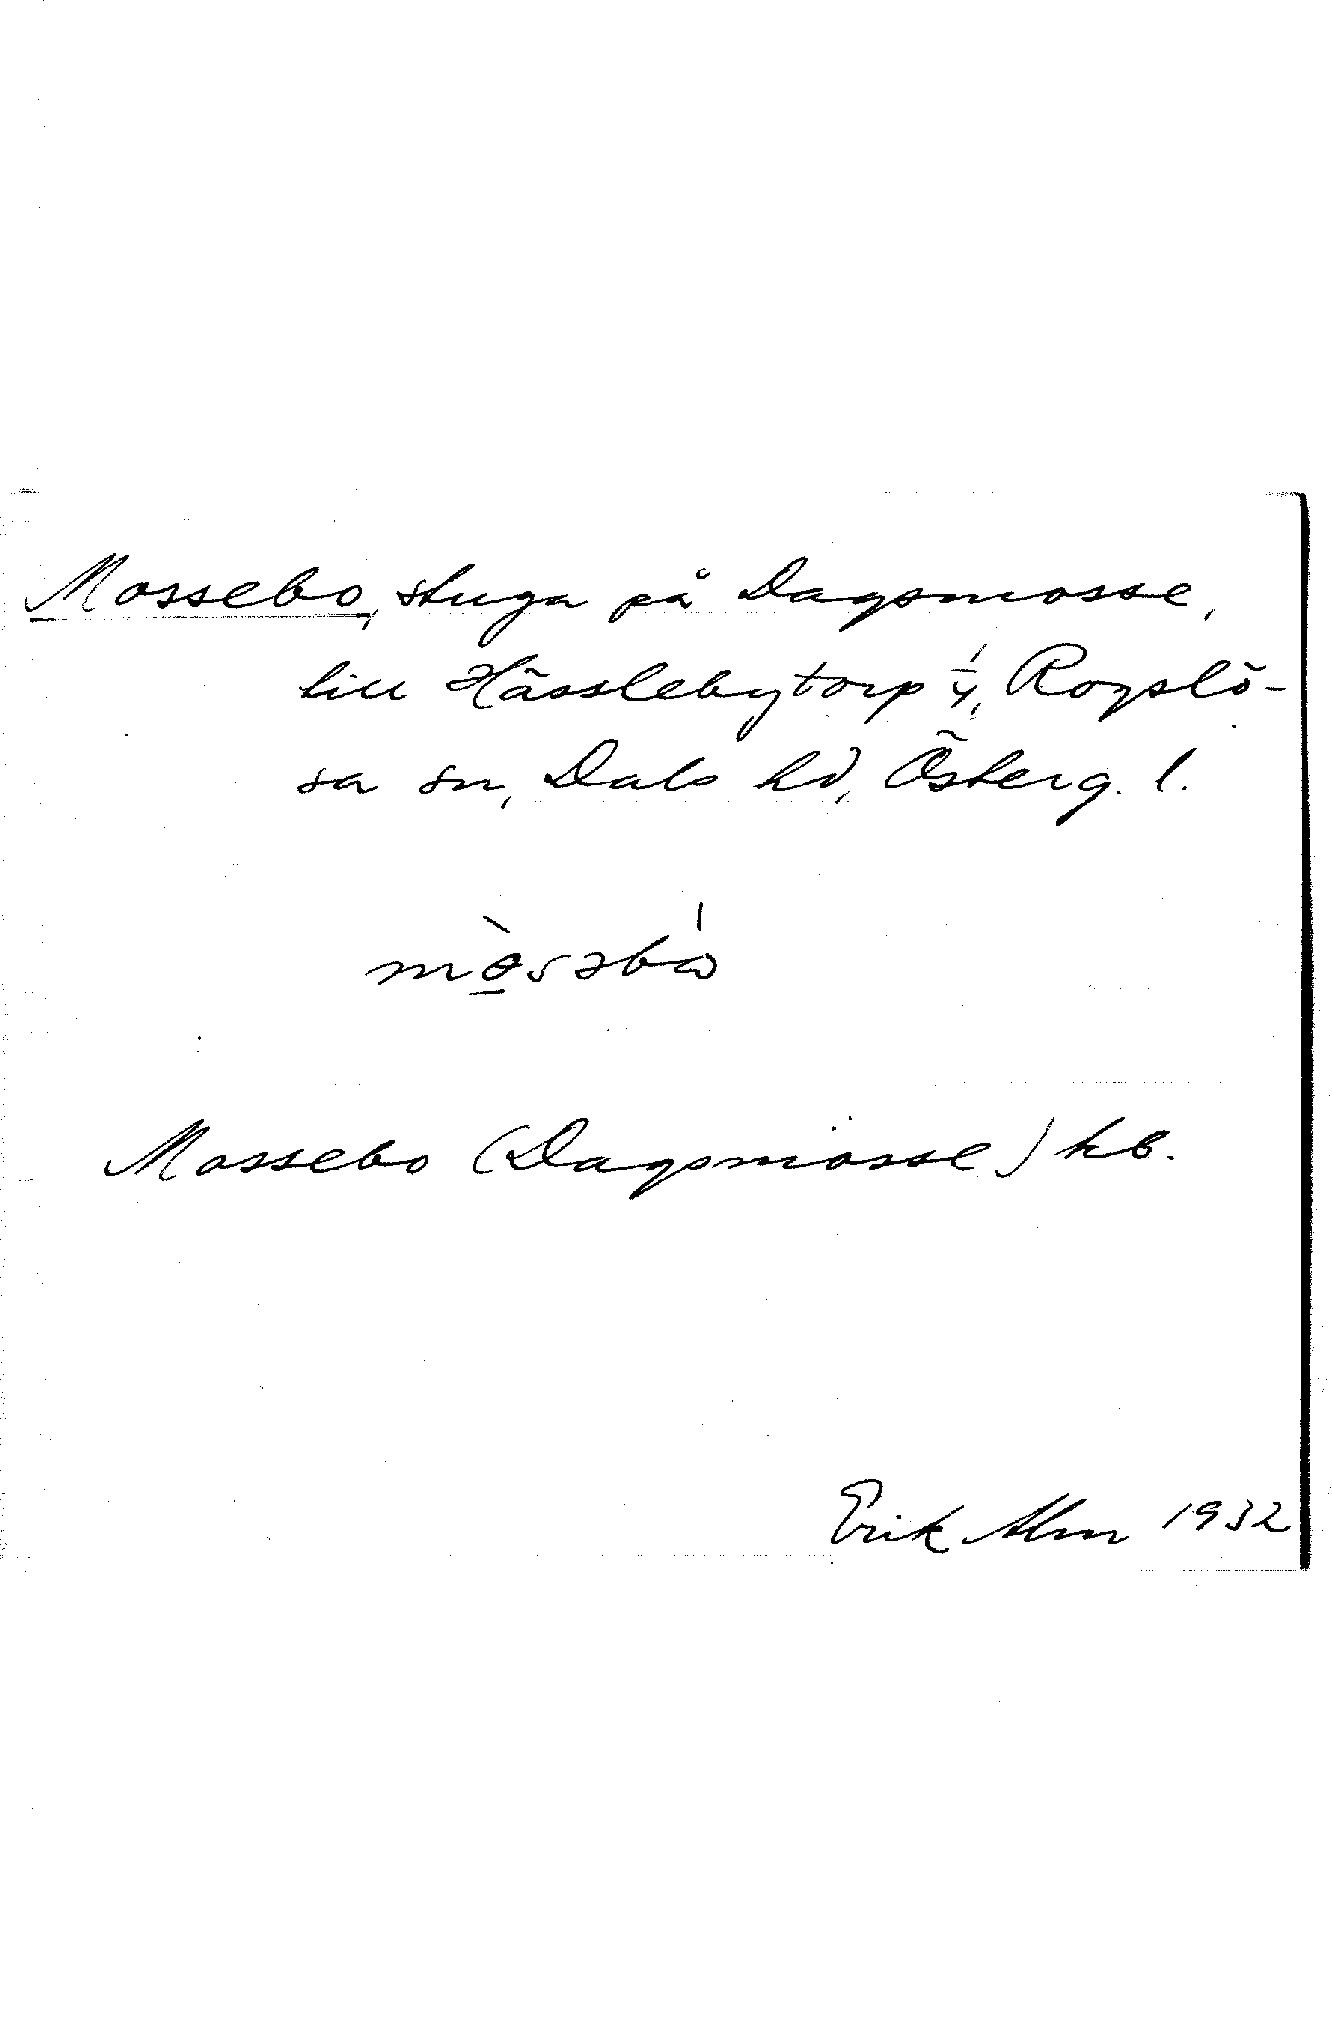 Mossebo, stuga på Dagsmosse,
till Hässlebytorp 1/4, Rogslö-
sa sn, Dals hd, Österg. l.
Mossebo (Dagsmosse) kb.
Erik Alm 1932